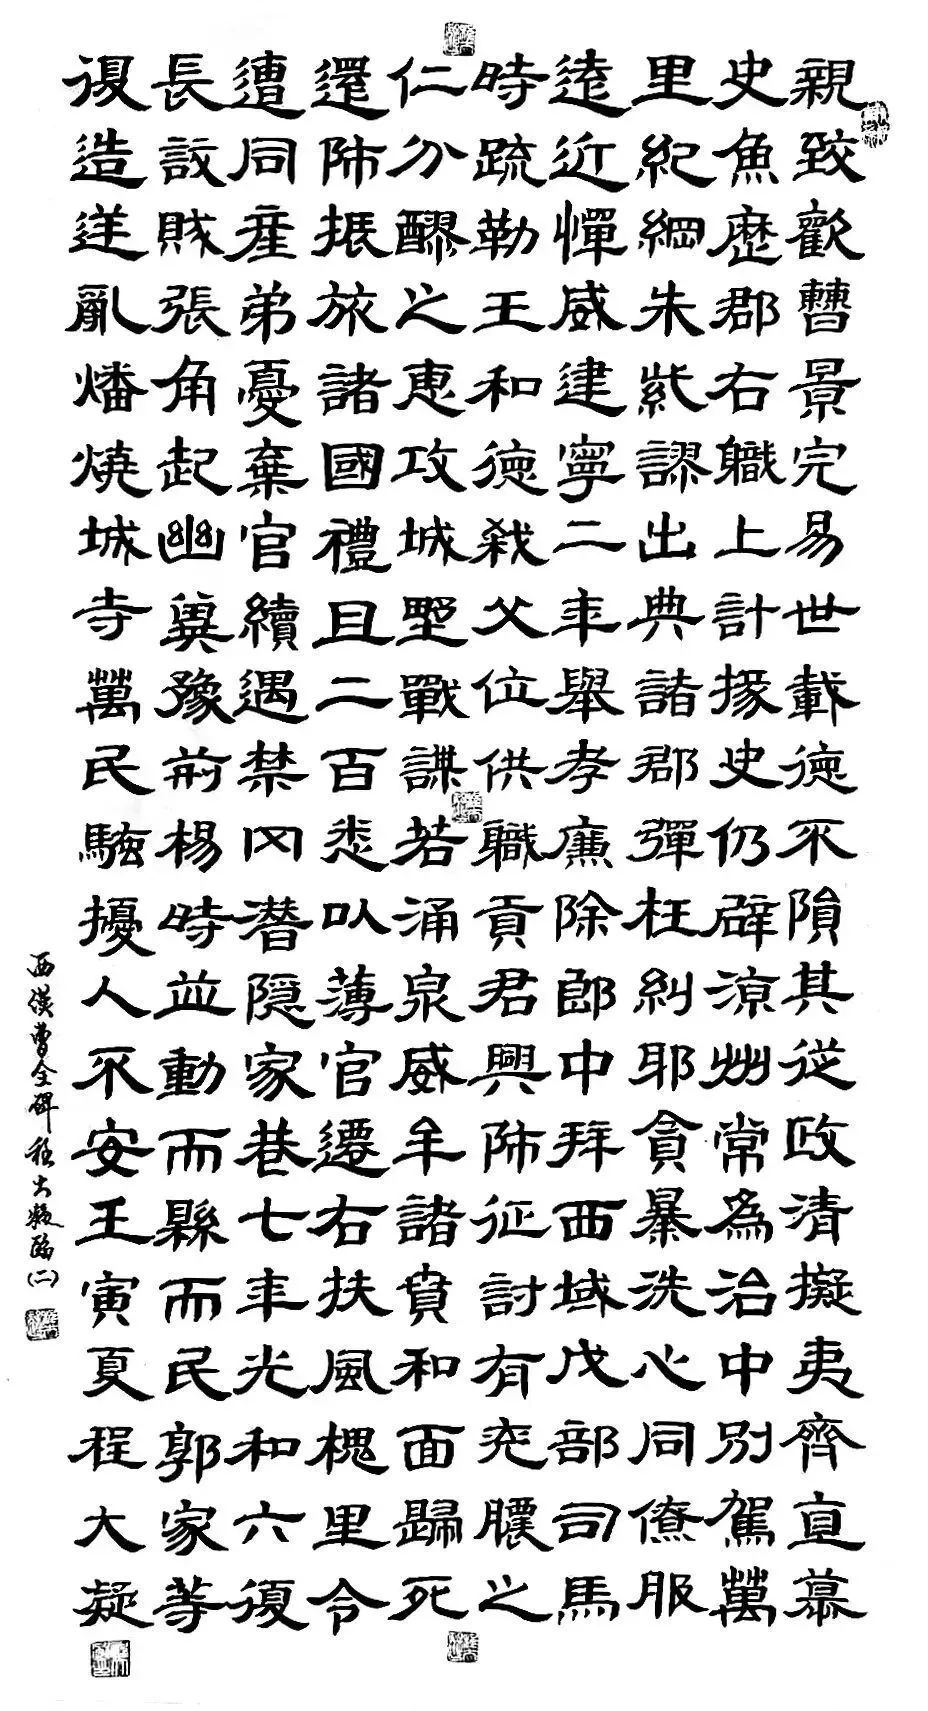 親致歡曹景完易世載德不隕其從政清擬夷齊直慕
史魚歷郡右職上計掾史仍辟涼州常為治中別駕萬
里紀綱朱紫謬出典諸郡彈枉糾耶貪暴洗心同僚服
遠近憚威建寧二年舉孝廉除郎中拜西域戊部司馬
時疏勒王和德弒父位供職貢君興師征討有兖膿之
仁分醪之惠攻城野戰謀若涌泉威牟諸賁和面歸死
還師振旅諸國禮且二百悉以薄官遷右扶風槐里令
遭同產弟憂棄官續遇禁冈潛隱家巷七年光和六復
長設賊張角起幽冀豫荊楊時並動而縣而民郭家等
復造逆亂燔燒城寺萬民騷擾人不安王寅夏程大凝
西漢曹全碑程大凝臨(二)